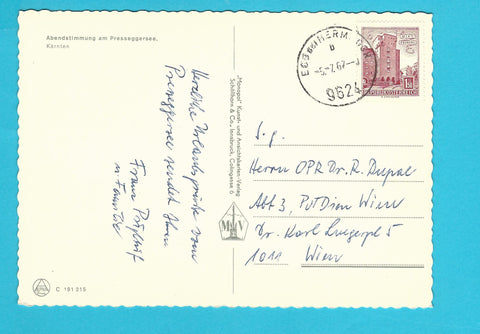 Abendstimmung am Presseggersee,
Kärnten
Herzliche Urlaubsgrüße vom
Presseggersee sendet Ihnen
Franz
u. Familie
"Monopol" Kunst- und Ansichtskarten-Verlag
Schöllhorn & Co., Innsbruck, Colingasse 6
C 191 215
EGG bei HERMAGOR
b
9624
REPUBLIK ÖSTERREICH
S. g.
Herrn OPR Dr. R. Dupal
Abt 3, PuTDion Wien
Dr. Karl Luegerpl 5
1011 Wien